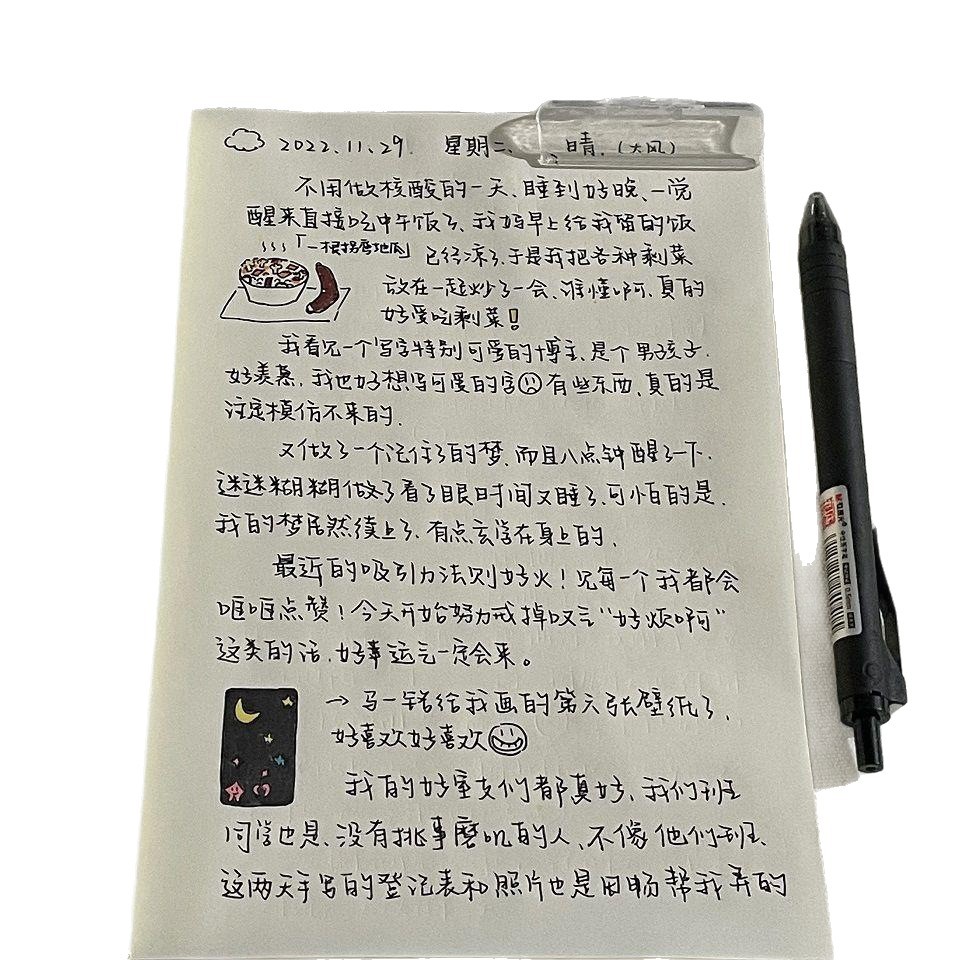 2022.11.29. 星期二、晴.(大风)
不用做核酸的一天、睡到好晚、一觉
醒来直接吃中午饭了、我妈早上给我留的饭
「一根拐磨地瓜
已经凉了、于是我把各种剩菜
放在一起炒了一会、谁懂啊、真的
好爱吃剩菜!
我看见一个写字特别可爱的博主、是个男孩子.
好羡慕、我也好想写可爱的字 有些东西、真的是
注定模仿不来的.
又做了一个记住了的梦、而且八点钟醒了一下.
迷迷糊糊做了看了眼时间又睡了、可怕的是.
我的梦居然续上了、有点玄学在身上的.
最近的吸引力法则好火!见每一个我都会
哐哐点赞!今天开始努力戒掉叹气“好烦啊”
这类的话、好事运气一定会来。
→ 马一铭给我画的第六张壁纸了、
好喜欢好喜欢
我的好室友们都真好、我们班
同学也是、没有挑事磨叽的人、不像他们班、
这两天手写的登记表和照片也是田畅帮我弄的
0.5mm